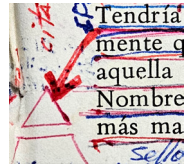 cita
Tendría
mente q
aquella
Nombre
más ma
Sello